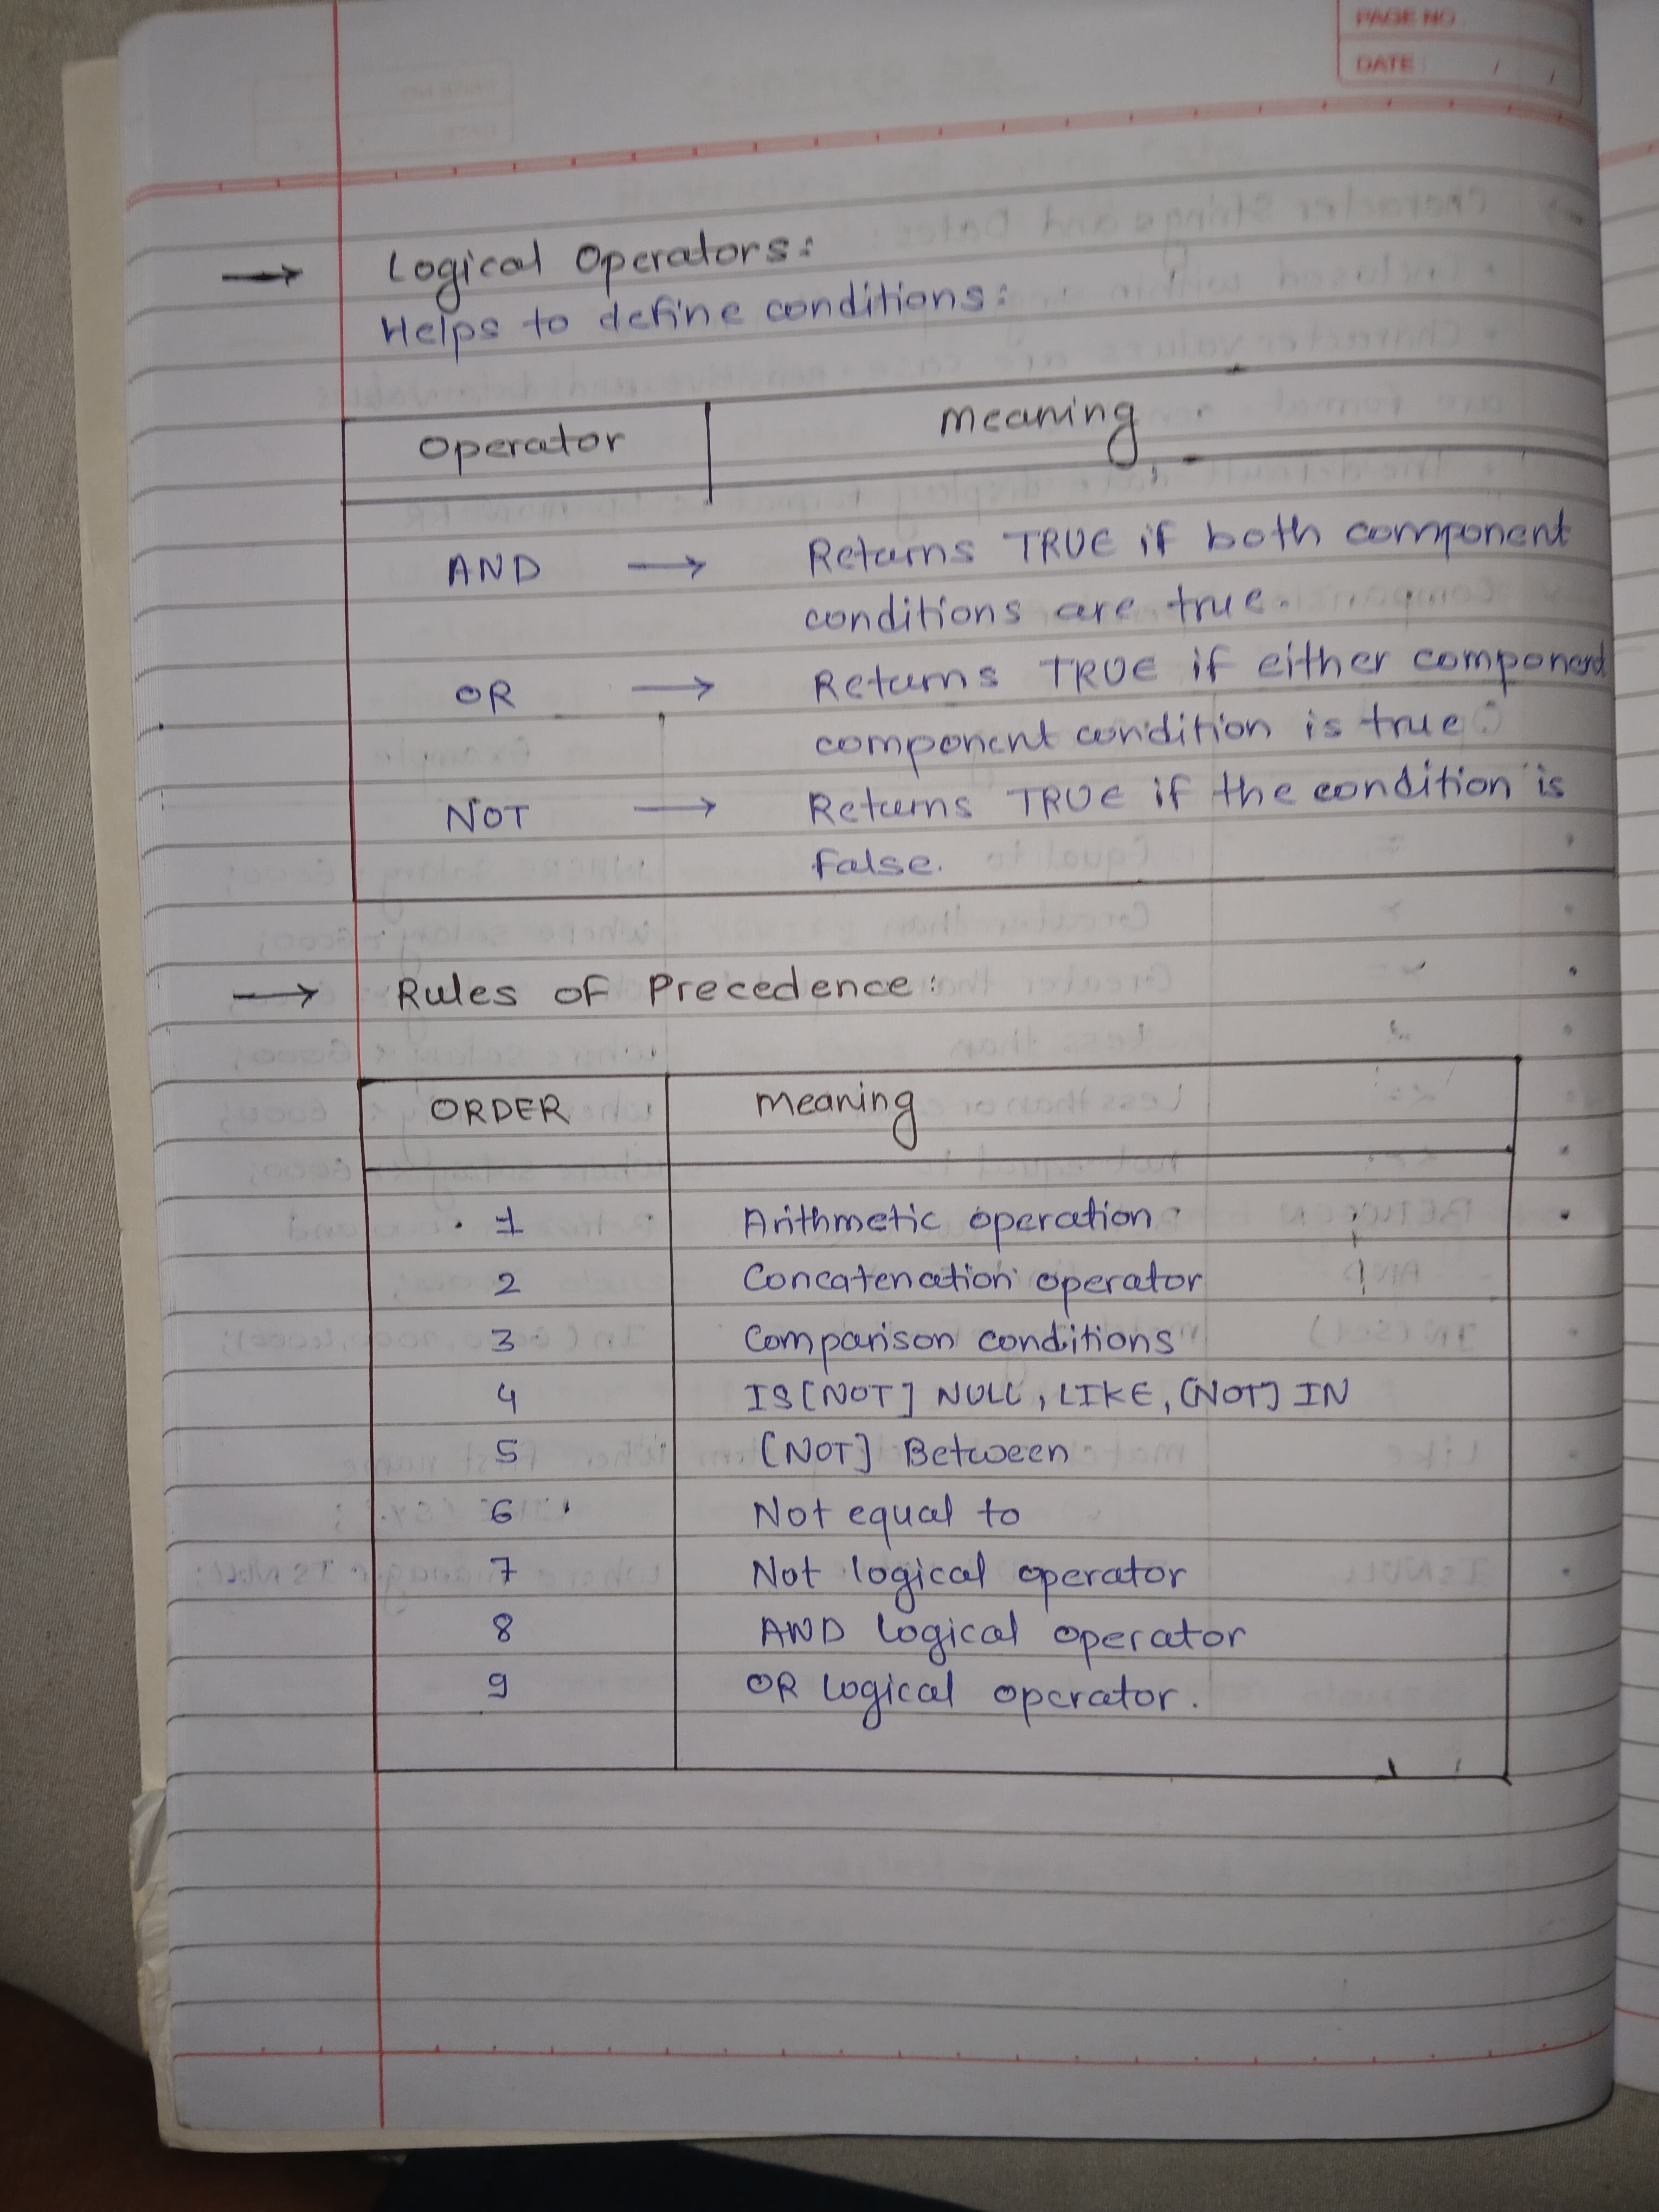 PAGE NO.
DATE / /
→ Logical Operators:
Helps to define conditions:
Operator meaning
AND → Returns TRUE if both component
conditions are true.
OR → Returns TRUE if either component
component condition is true.
NOT → Returns TRUE if the condition is
false.
→ Rules of Precedence:
ORDER meaning
1 Arithmetic operation
2 Concatenation operator
3 Comparison conditions
4 IS [NOT] NULL, LIKE, [NOT] IN
5 [NOT] Between
6 Not equal to
7 Not logical operator
8 AND logical operator
9 OR logical operator.